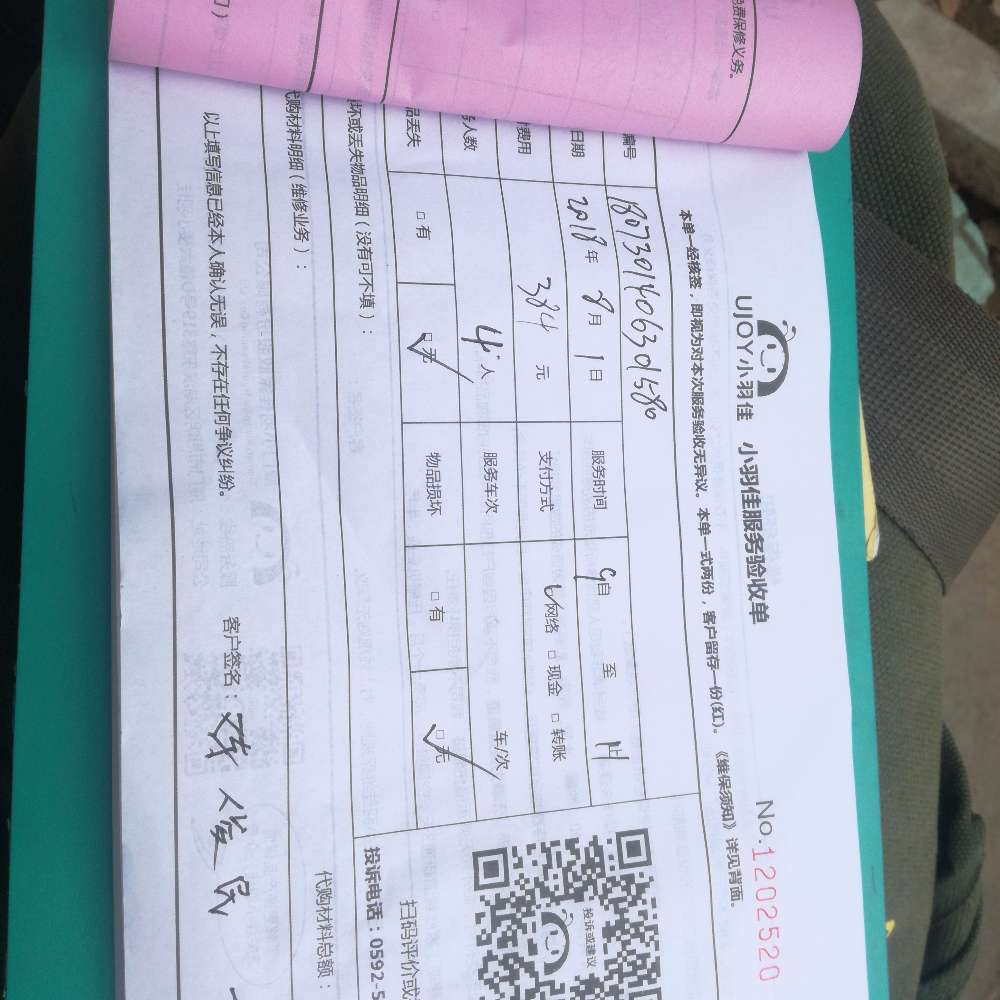 免费保修义务。
UJOY小羽佳 小羽佳服务验收单
No.1202520
本单一经核签，即视为对本次服务验收无异议。本单一式两份，客户留存一份(红)。《维保须知》详见背面。
编号 1807301406301580
日期 2018年8月1日 服务时间 9自 至 11
费用 384元 支付方式 ✓网络 □现金 □转账
人数 4人 服务车次 车/次
品丢失 □有 ☑无 物品损坏 □有 ☑无
坏或丢失物品明细（没有可不填）：
投诉或建议
扫码评价或
投诉电话：0592-5
代购材料明细（维修业务）：
代购材料总额：
以上填写信息已经本人确认无误，不存在任何争议纠纷。 客户签名：